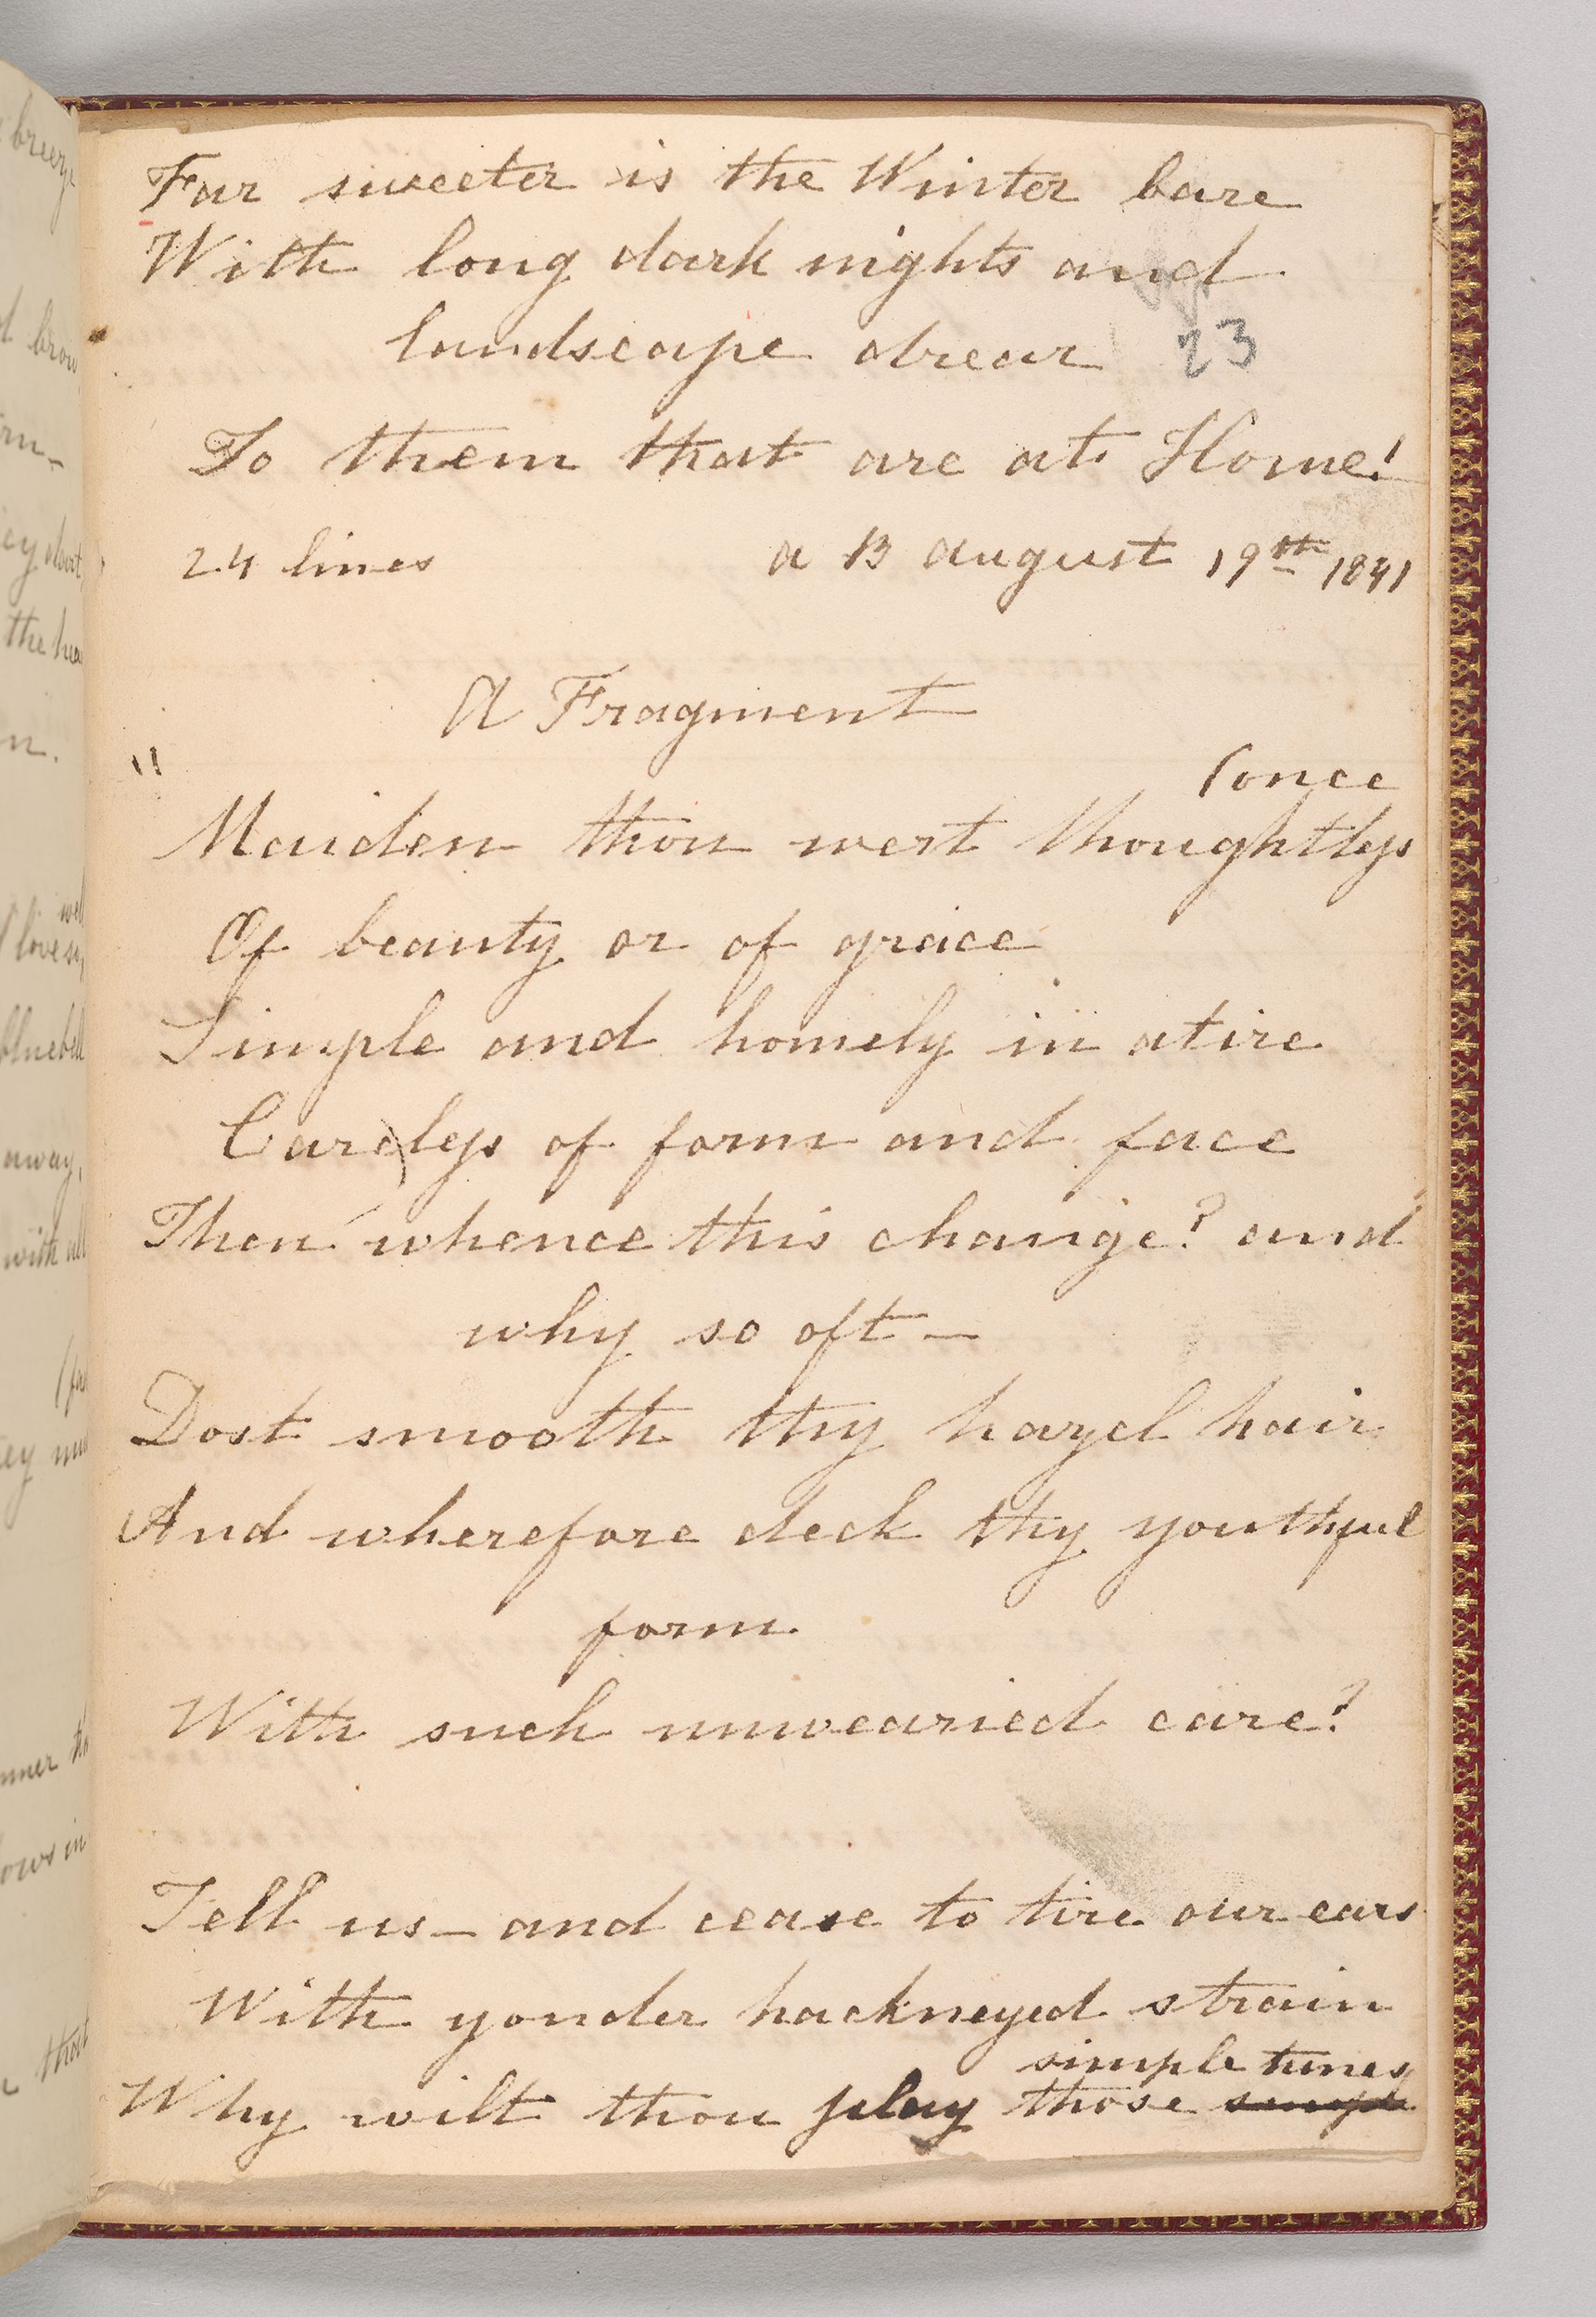 Far sweeter is the Winter bare
With long dark nights and
landscape drear 23
To them that are at Home!
24 lines a B august 19th 1841
A Fragment
"
(once
Maiden thou wert thoughtlys
Of beauty or of grace
Simple and homely in atire
Carelys of form and face
Then whence this change? and
why so oft —
Dost smooth thy hazel hair
And wherefore deck thy youthful
form.
With such unwearied care?
Tell us — and cease to tire our ears
With yonder hackneyed strain
simple tunes
Why wilt thou play those simple